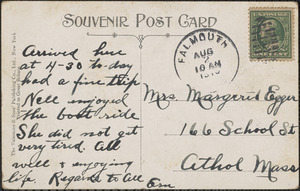 SOUVENIR POST CARD
FALMOUTH
AUG
10 AM
Arrived here
at 4-30 to-day
had a fine trip
Nell enjoyed
the boat ride
She did not get
very tired. All
well & enjoying
life. Regards to All
Em
Mrs. Margerit Egger
166 School St
Athol Mass